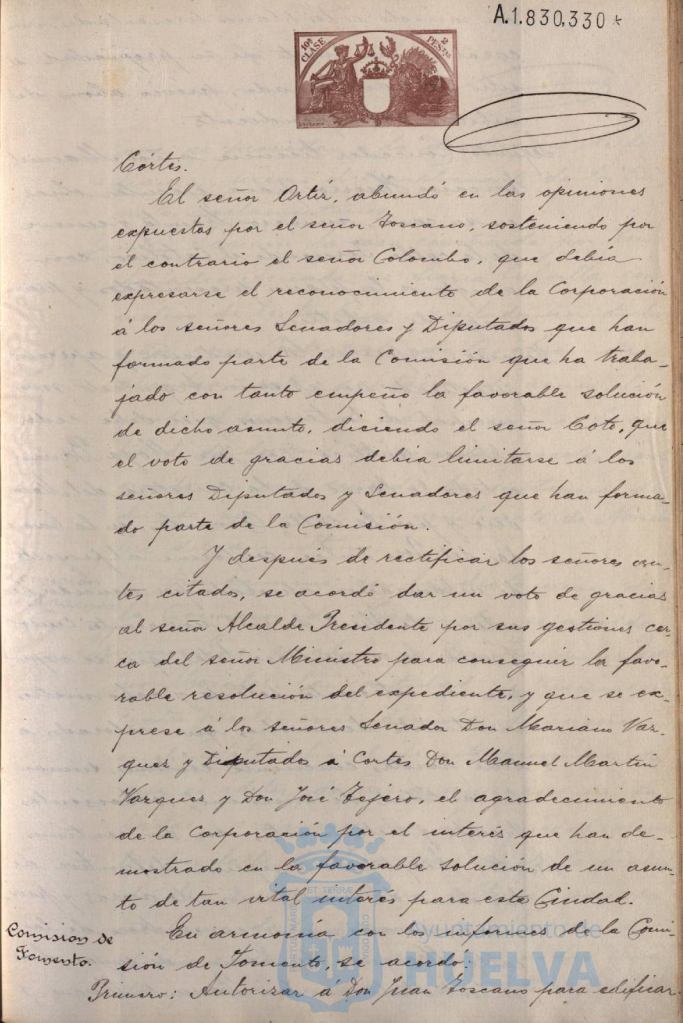 A.1.830,330*
10ª CLASE
2 PESTAS
Córtes.
El señor Ortiz, abundó en las opiniones
expuestas por el señor Toscano, sosteniendo por
el contrario el señor Colombo, que debia
expresarse el reconocimiento de la Corporación
á los señores Senadores y Diputados que han
formado parte de la Comisión que ha traba-
jado con tanto empeño la favorable solución
de dicho asunto, diciendo el señor Coto, que
el voto de gracias debia limitarse á los
señores Diputados y Senadores que han forma-
do parte de la Comisión.
Y después de rectificar los señores an-
tes citados, se acordó dar un voto de gracias
al señor Alcalde Presidente por sus gestiones cer-
ca del señor Ministro para conseguir la favo-
rable resolución del expediente, y que se ex-
prese á los señores Senador Don Mariano Vaz-
quez y Diputados á Cortes Don Manuel Martin
Vazquez y Don José Tejero, el agradecimiento
de la Corporación por el interés que han de-
mostrado en la favorable solución de un asun-
to de tan vital interés para esta Ciudad.
Comision de
Fomento.
En armonía con los informes de la Comi-
sión de Fomento, se acordó:
Primero: Autorizar á Don Juan Toscano para edificar
Ayuntamiento de
HUELVA